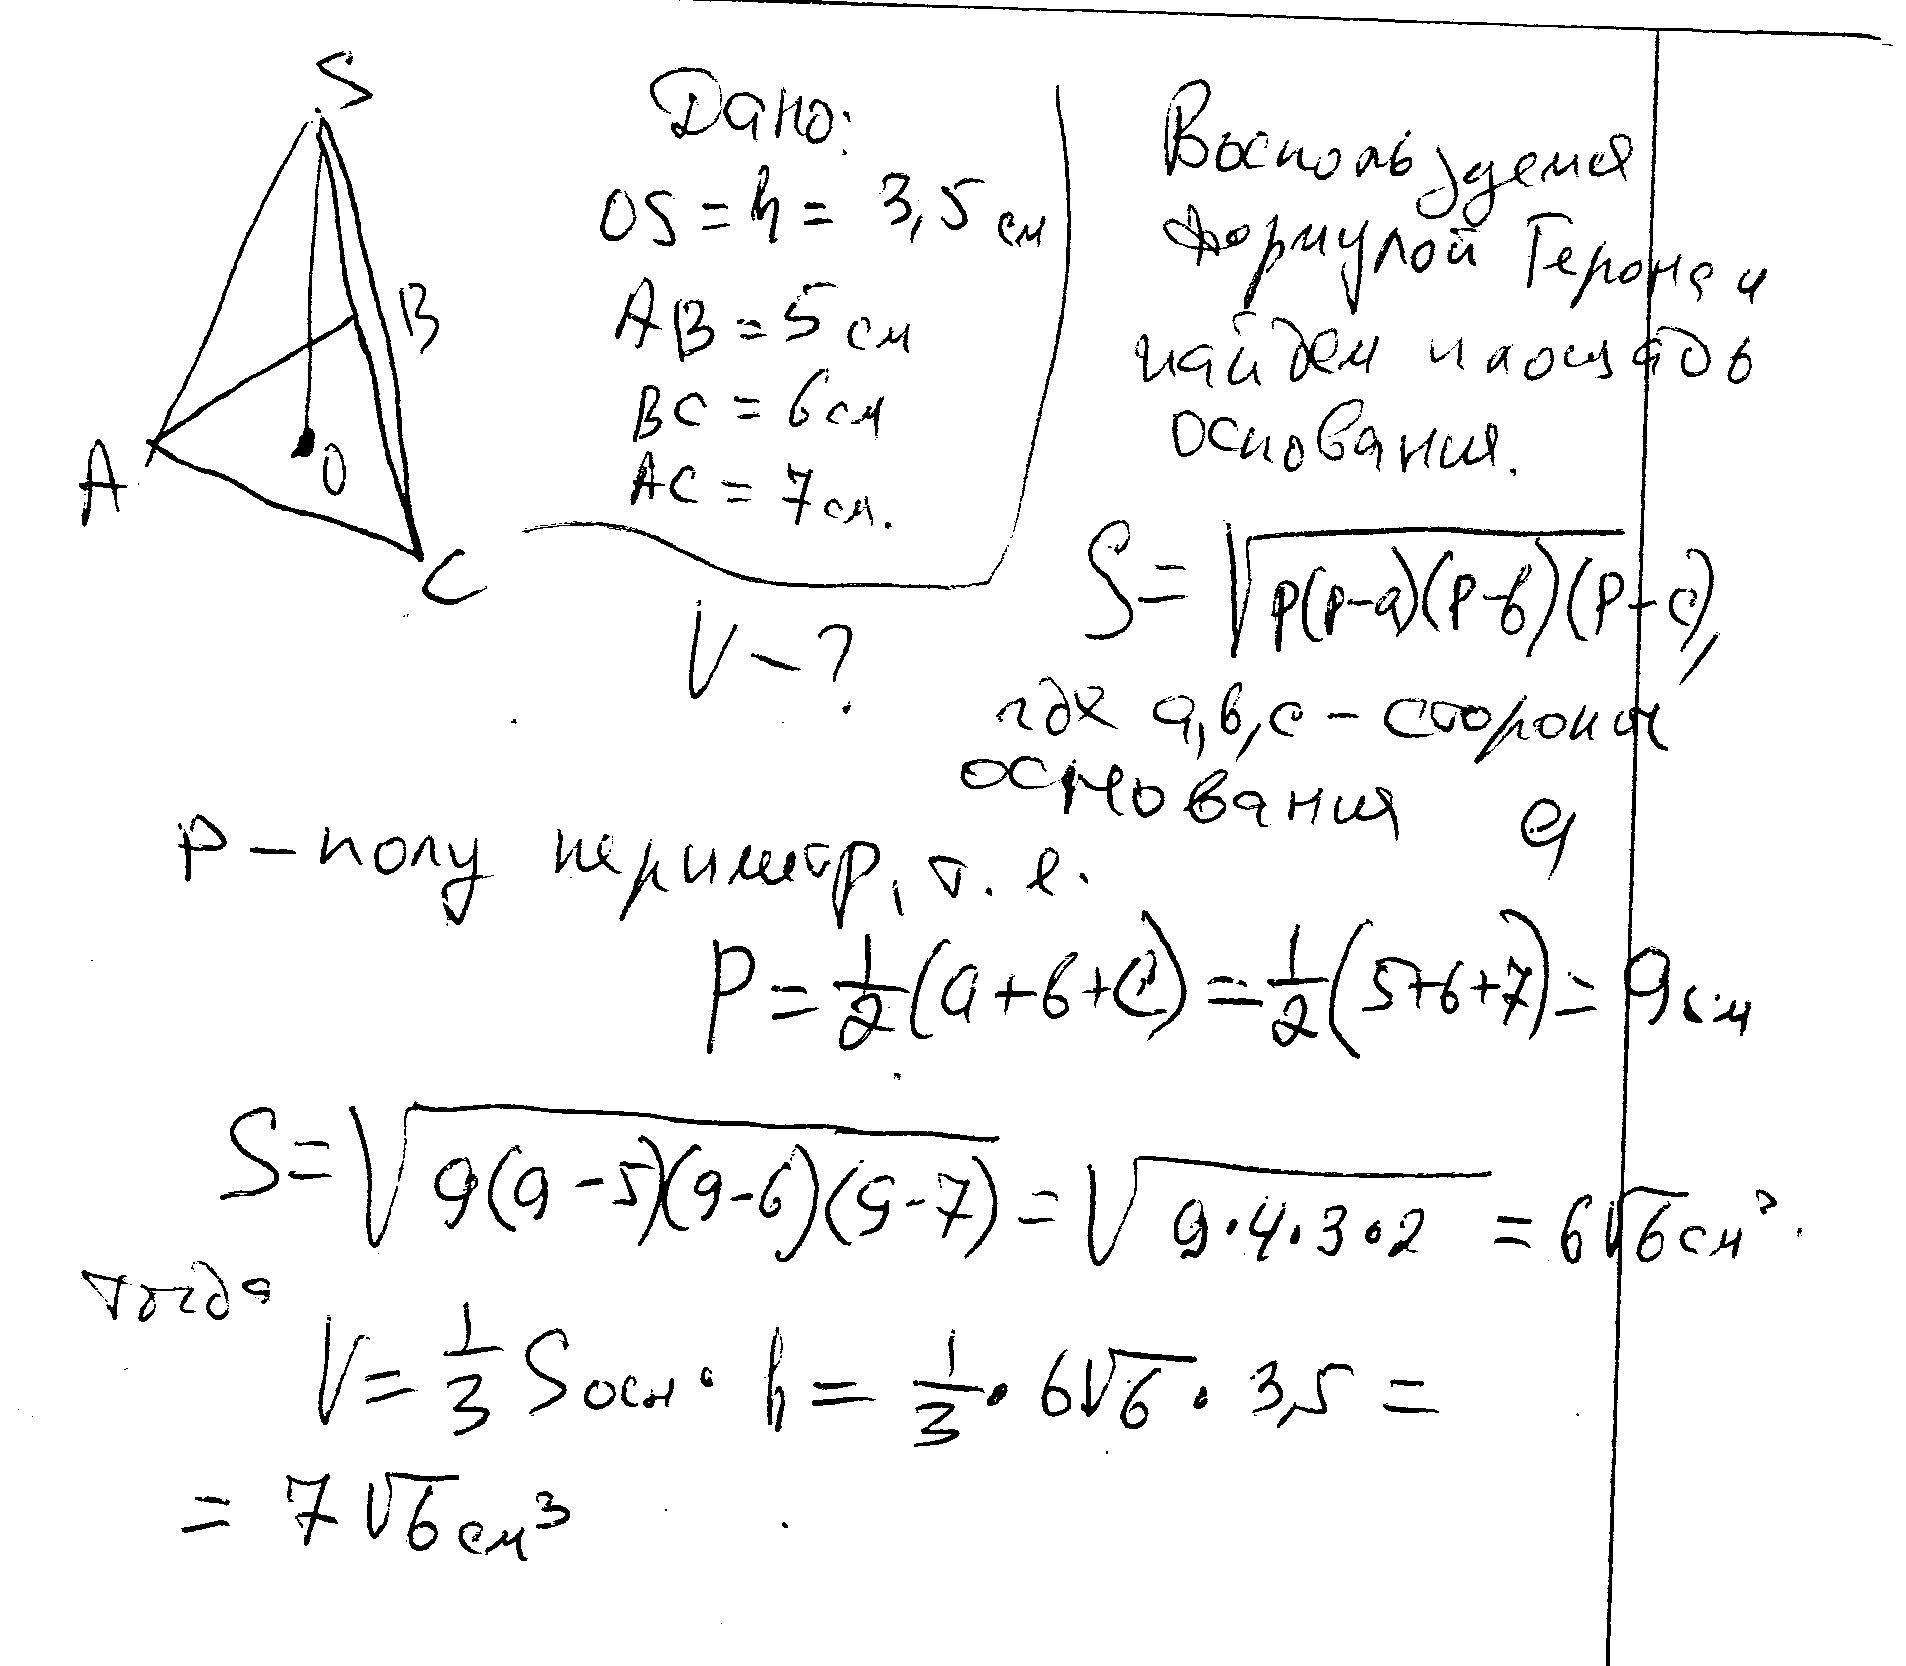 S
A
B
O
C
Дано:
OS = h = 3,5 см
AB = 5 см
BC = 6 см
AC = 7 см.
V - ?
Воспользуемся
формулой Герона и
найдем площадь
основания.
S = √p(p-a)(p-b)(p-c),
где a, b, c - стороны
основания а
p - полу периметр, т. е.
p = 1/2 (a + b + c) = 1/2 (5+6+7) = 9 см
S = √9(9-5)(9-6)(9-7) = √9·4·3·2 = 6√6 см².
тогда
V = 1/3 Sосн · h = 1/3 · 6√6 · 3,5 =
= 7√6 см³